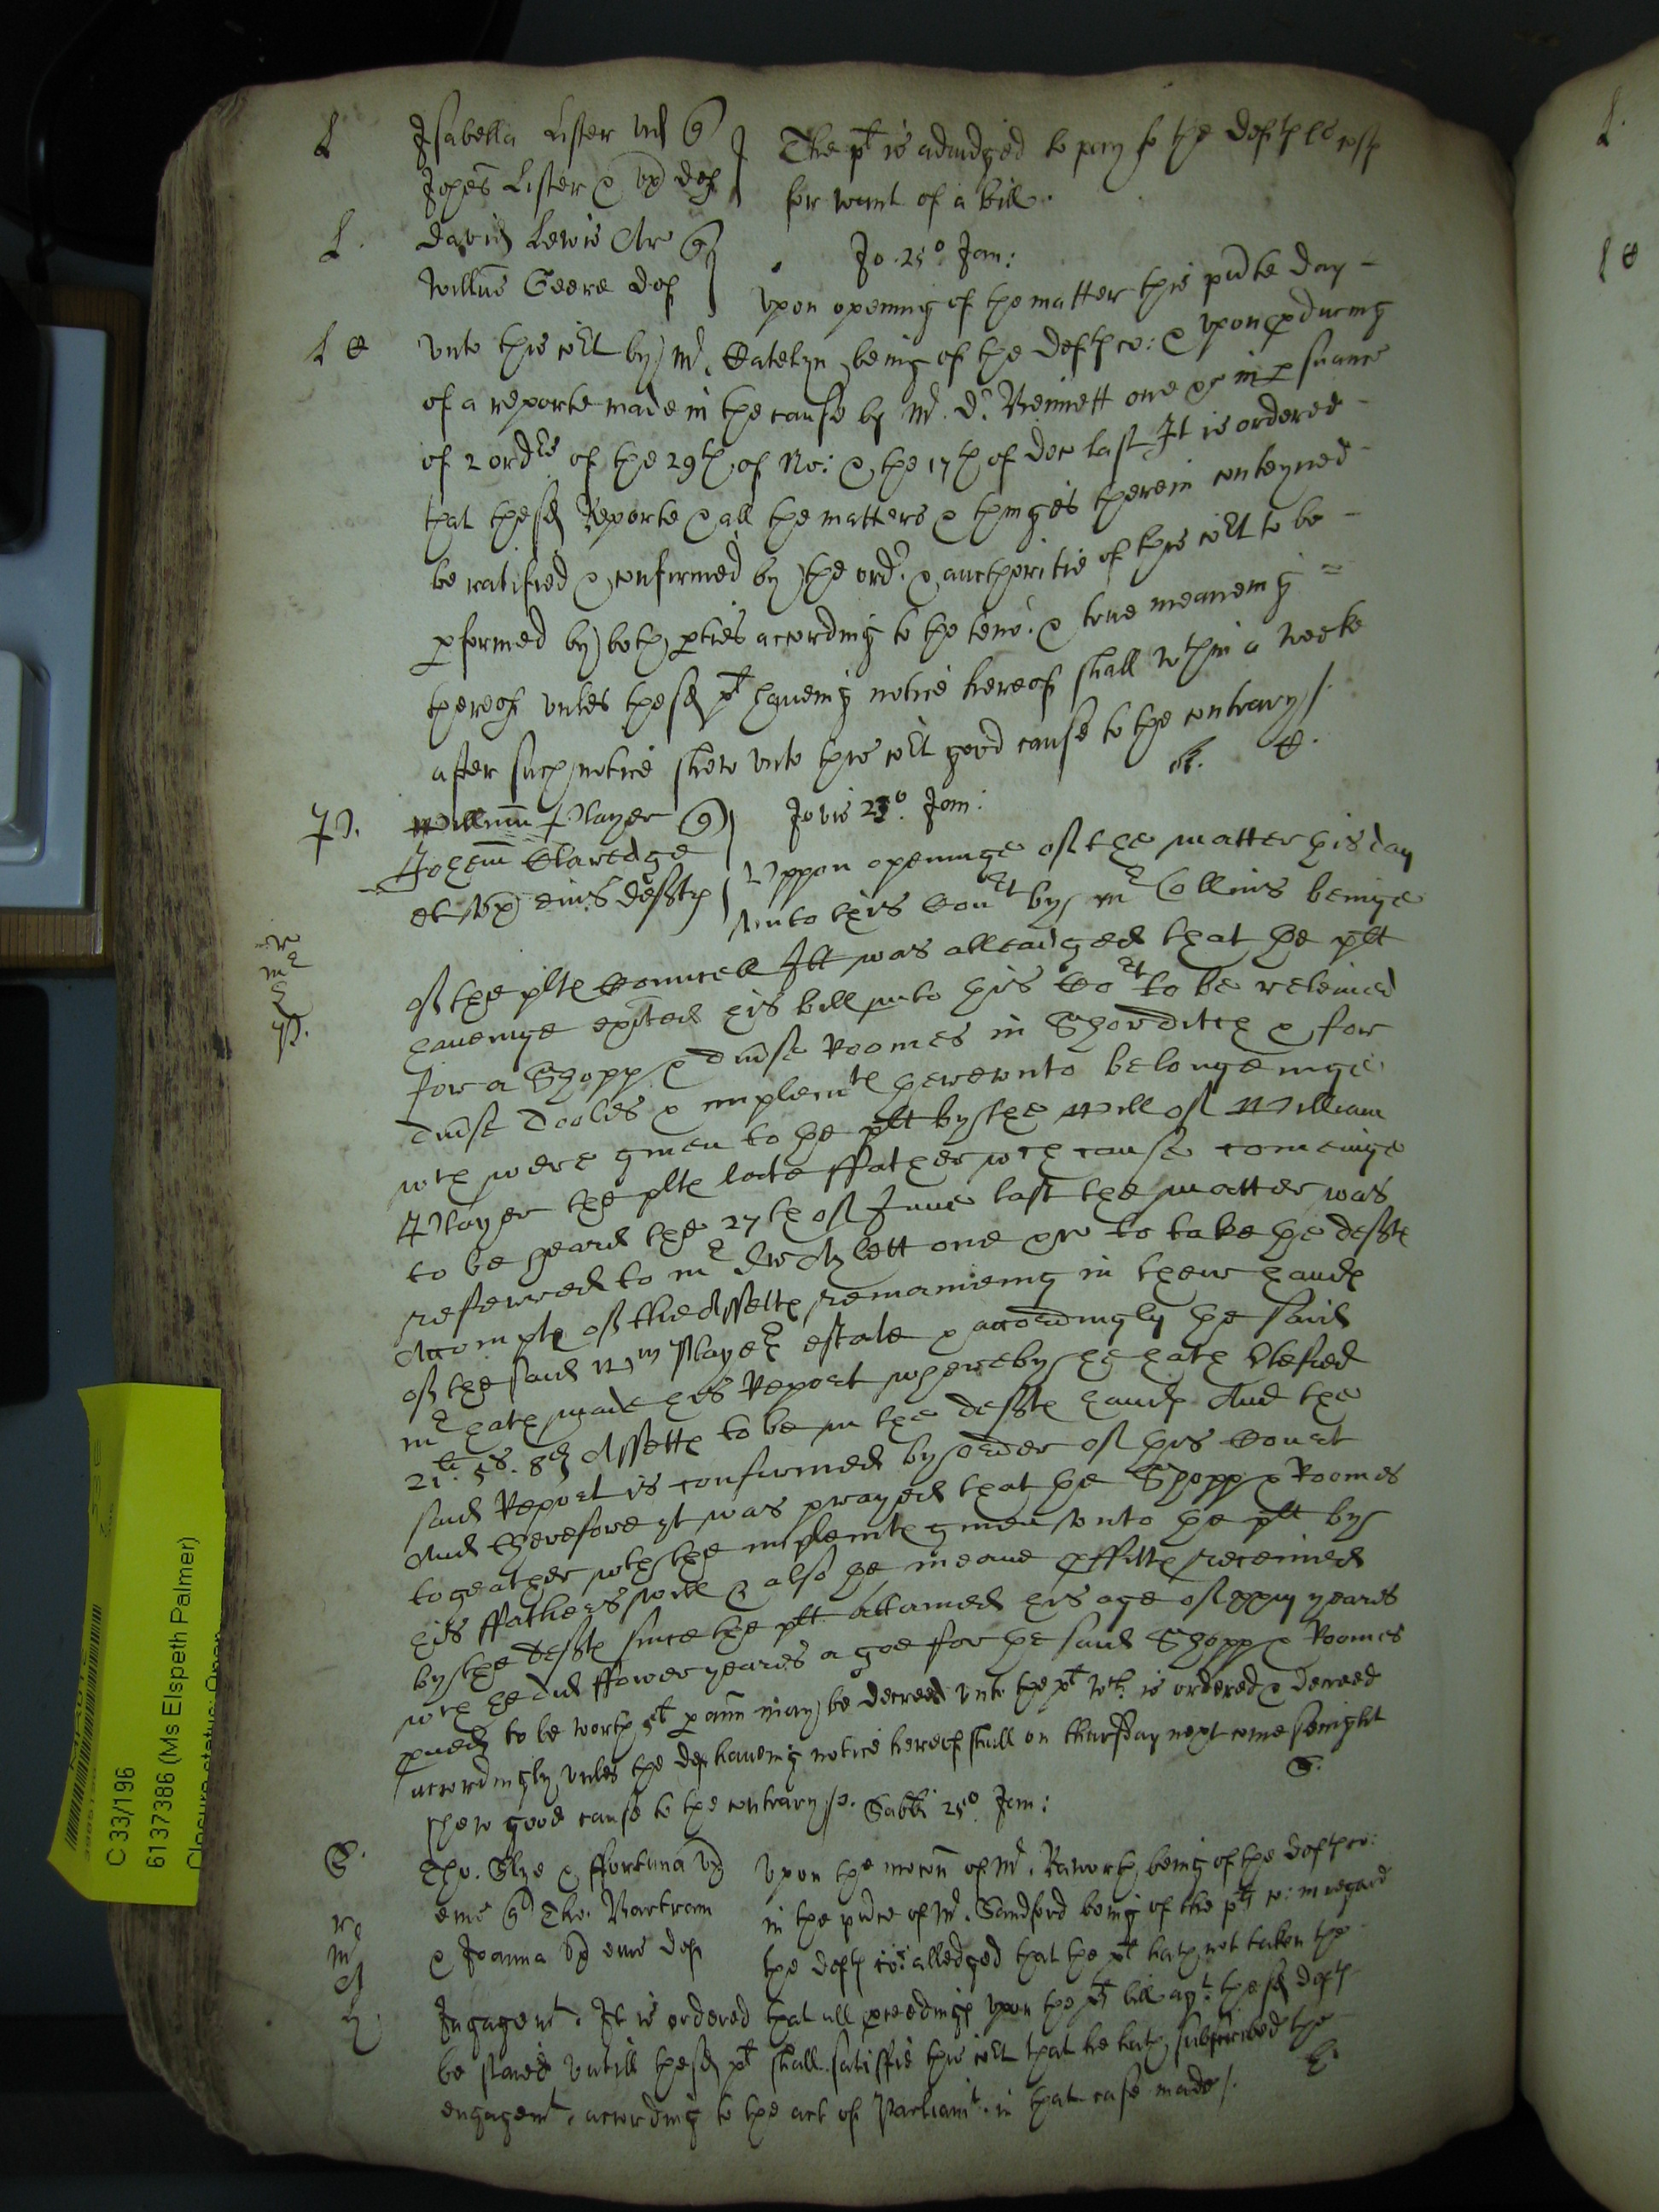 L Isabella Lister vid q
Johes Lister & vx def
The plt is adiudged to pay to the defts costs
for want of a bill.
L. David Lewis Ar q
Willus Geere def
Jo. 25° Jan:
Vpon opening of the matter this pnte day
L vnto this Cort by Mr. Catelyn being of the defts co: & vpon producing
of a reporte made in the cause by Mr. Dr. Bennett one &c in psuance
of 2 ordrs of the 29th of No: & the 17th of Dec last It is ordered
that the sd Reporte & all the matters & thinges therein conteyned
be ratified & confirmed by the ordr. & aucthoritie of this Cort to be
pformed by both pties according to the teno. & true meaneing
thereof vnles the sd plt haueing notice hereof shall wthin a weeke
after such notice shew vnto this Cort good cause to the contrary /.
P. Willmm Player q
Johem Claredge
et vx eius deffts
Jovis 23° Jan:
Vppon openinge of the matter this day
vnto this Court by Mr Collins beinge
of the plts Councell Itt was alleaidged that the plt
haueinge exited his bill into this Cort to be releiued
for a Shopp & divse Roomes in Shorditch & for
divse Tooles & implemts therevnto belongeinge
wch were giuen to the plt by the Will of William
Player the plts late ffather wch cause comeinge
to be heard the 27th of June last the matter was
referred to Mr Dr Aylett one &c to take the deffts
Accompts of the Assetts remaineing in their hands
of the said Wm Players estate & accordingly the said
Mr hath made his Report whereby he hath Certefied
21li. 5s. 8d Assetts to be in the deffts hands And the
said Report is confirmed by order of this Court
And therefore yt was prayed that the Shopp & Roomes
togeather wth the implemts giuen vnto the plt by
his ffathers will & also the meane pffitts receiued
by the deffts since the plt attained his age of xxiiij yeares
wch he did ffower yeares agoe for the said Shopp & Roomes
pued to be worth 5l p ann may be decreed vnto the plt wch. is ordered & decreed
accordingly vnles the def haueing notice hereof shall on thursday next come senight
shew good cause to the contrary /.
S.
Sabbi 25° Jan:
S. Tho. Slye & ffortuna vx
eius q Tho. Bartram
& Joanna vx eius def
Vpon the mocon of Mr. Haworth being of the defts co:
in the pnce of Mr. Sandford being of the plts co: in regard
the defts co: alledged that the plt hath not taken the
Ingagemt. It is ordered that all pceedings vpon the plts bill agt. the sd defts
be staied vntill the sd plt shall satisfie this Cort that he hath subscribed the
engagemt. according to the act of Parliamt. in that case made /.
C 33/196
6137386 (Ms Elspeth Palmer)
Closure status: Open